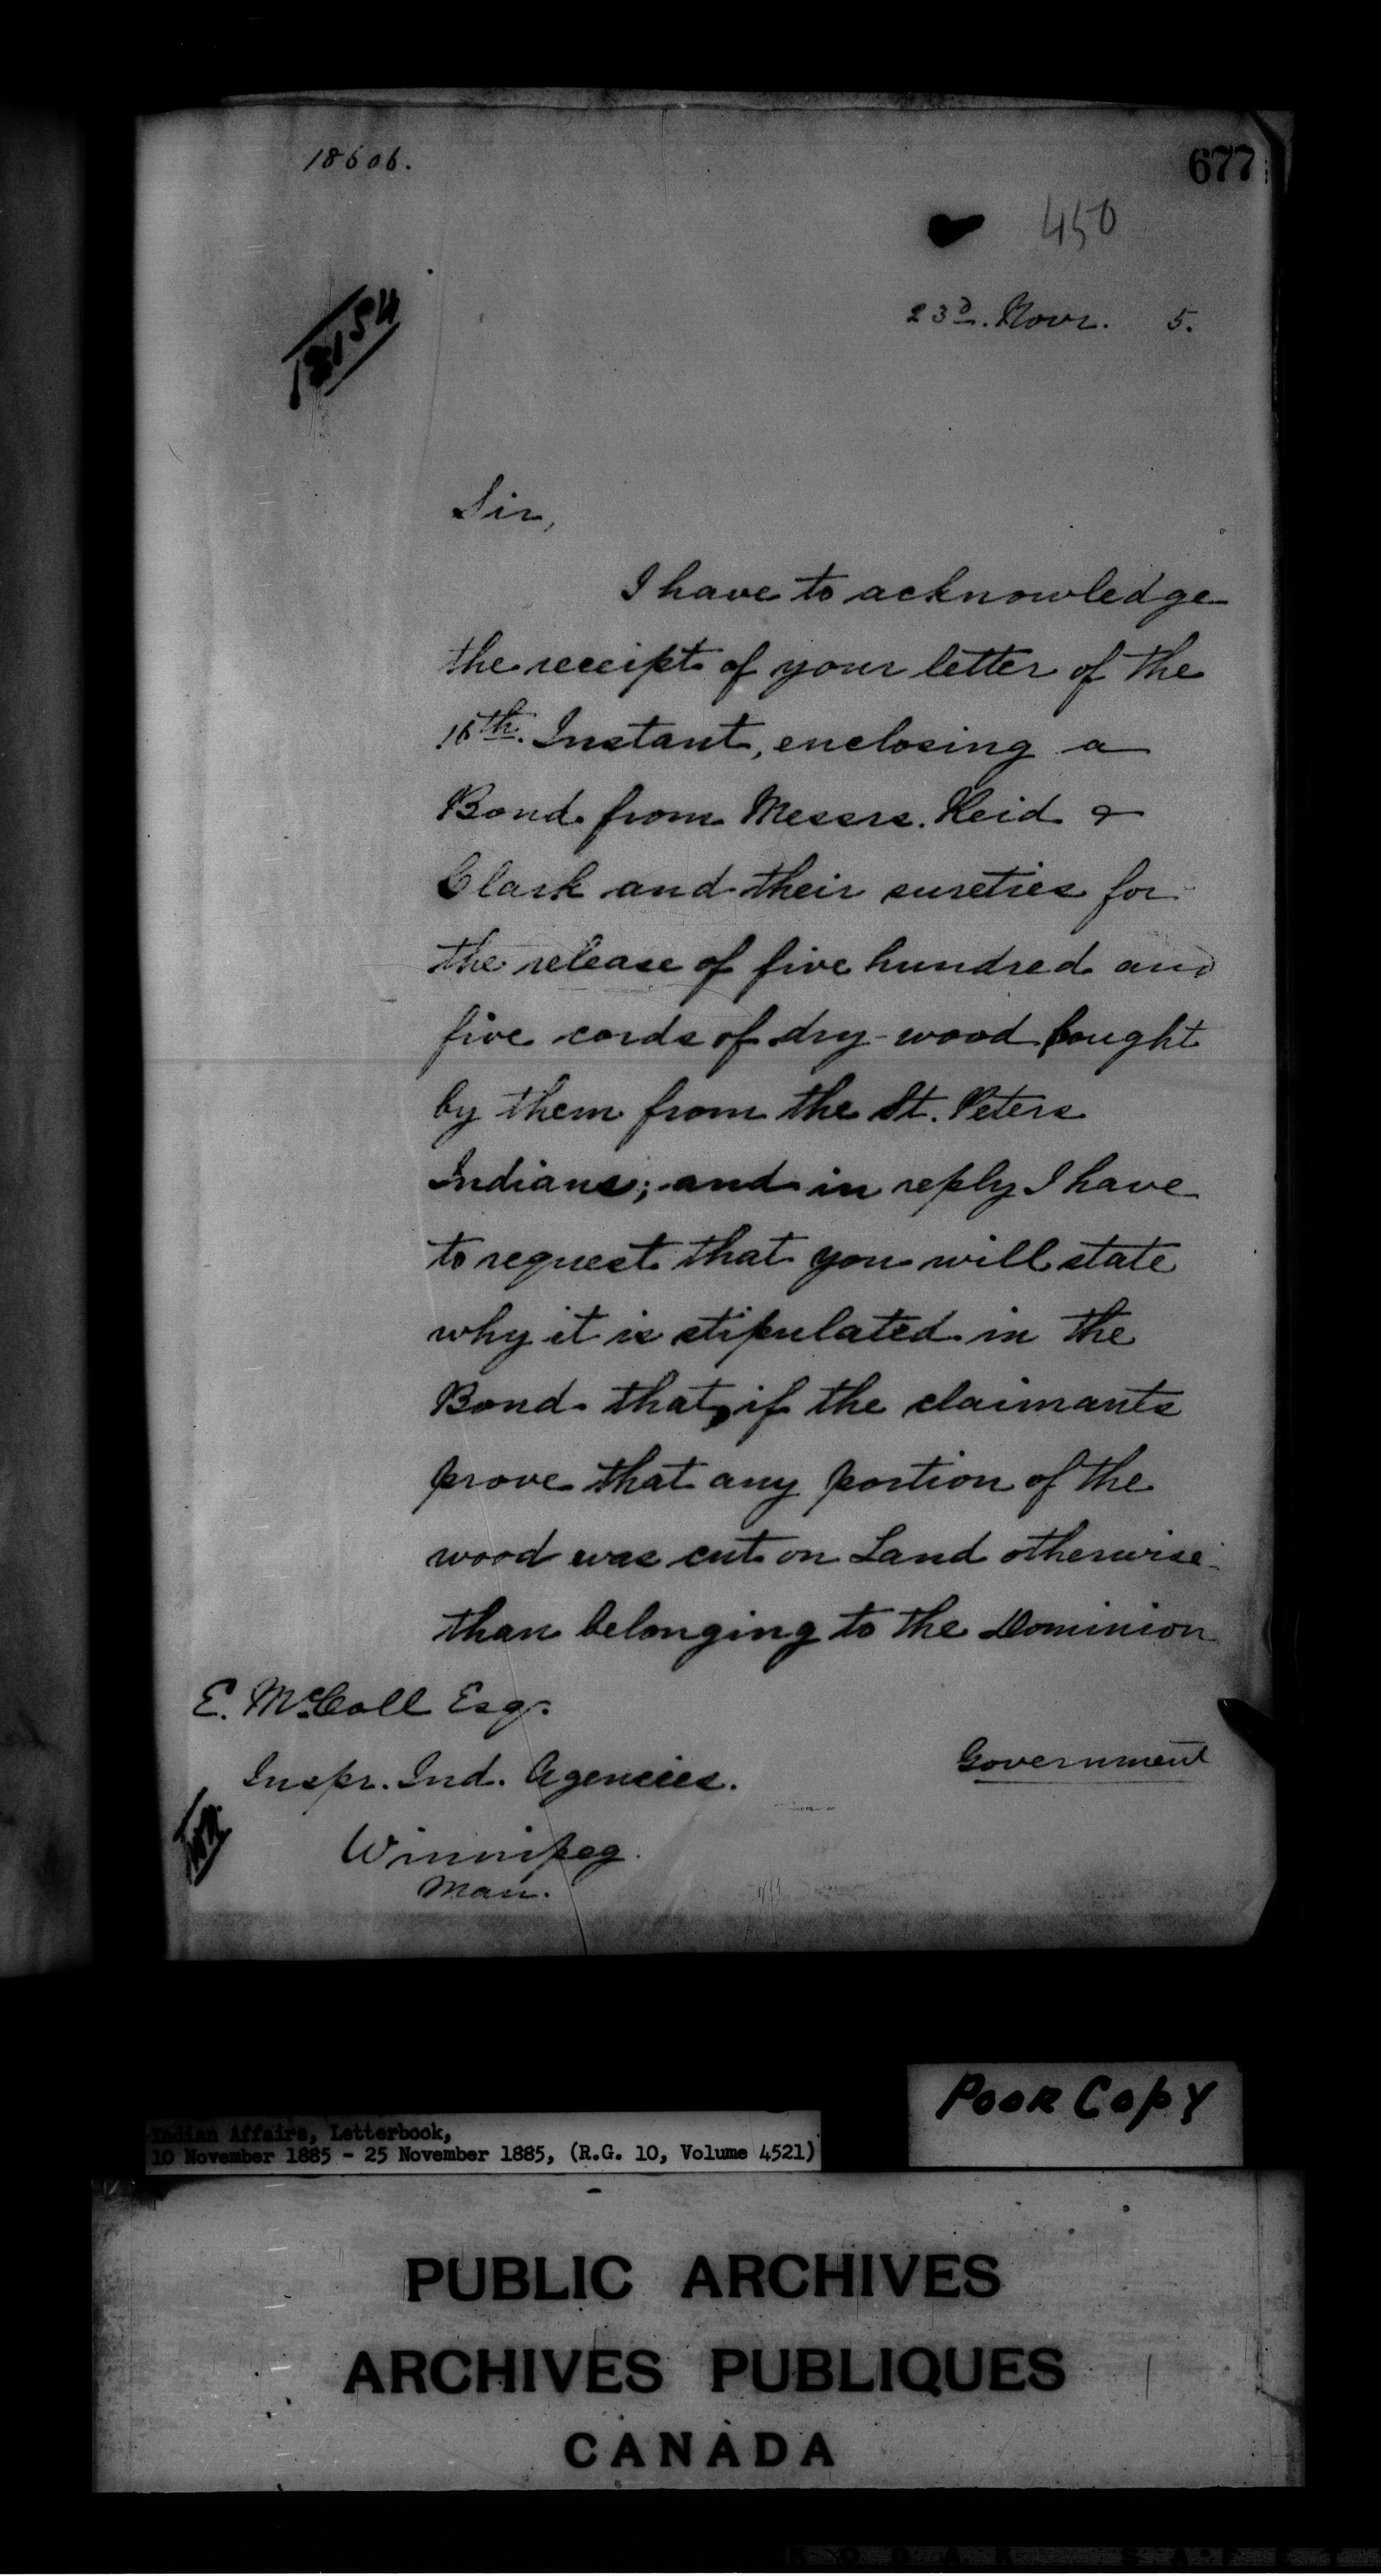 18606.
677
450
18154
23d. Novr. 5.
Sir,
I have to acknowledge
the receipt of your letter of the
16th. Instant, enclosing a
Bond from Messrs. Reid &
Clark and their sureties for
the release of five hundred and
five cords of dry-wood bought
by them from the St. Peters
Indians; and in reply I have
to request that you will state
why it is stipulated in the
Bond that, if the claimants
prove that any portion of the
wood was cut on Land otherwise
than belonging to the Dominion
Government
E. McColl Esqr.
Inspr. Ind. Agencies.
Winnipeg.
Man.
POOR COPY
Indian Affairs, Letterbook,
10 November 1885 - 25 November 1885, (R.G. 10, Volume 4521)
PUBLIC ARCHIVES
ARCHIVES PUBLIQUES
CANADA